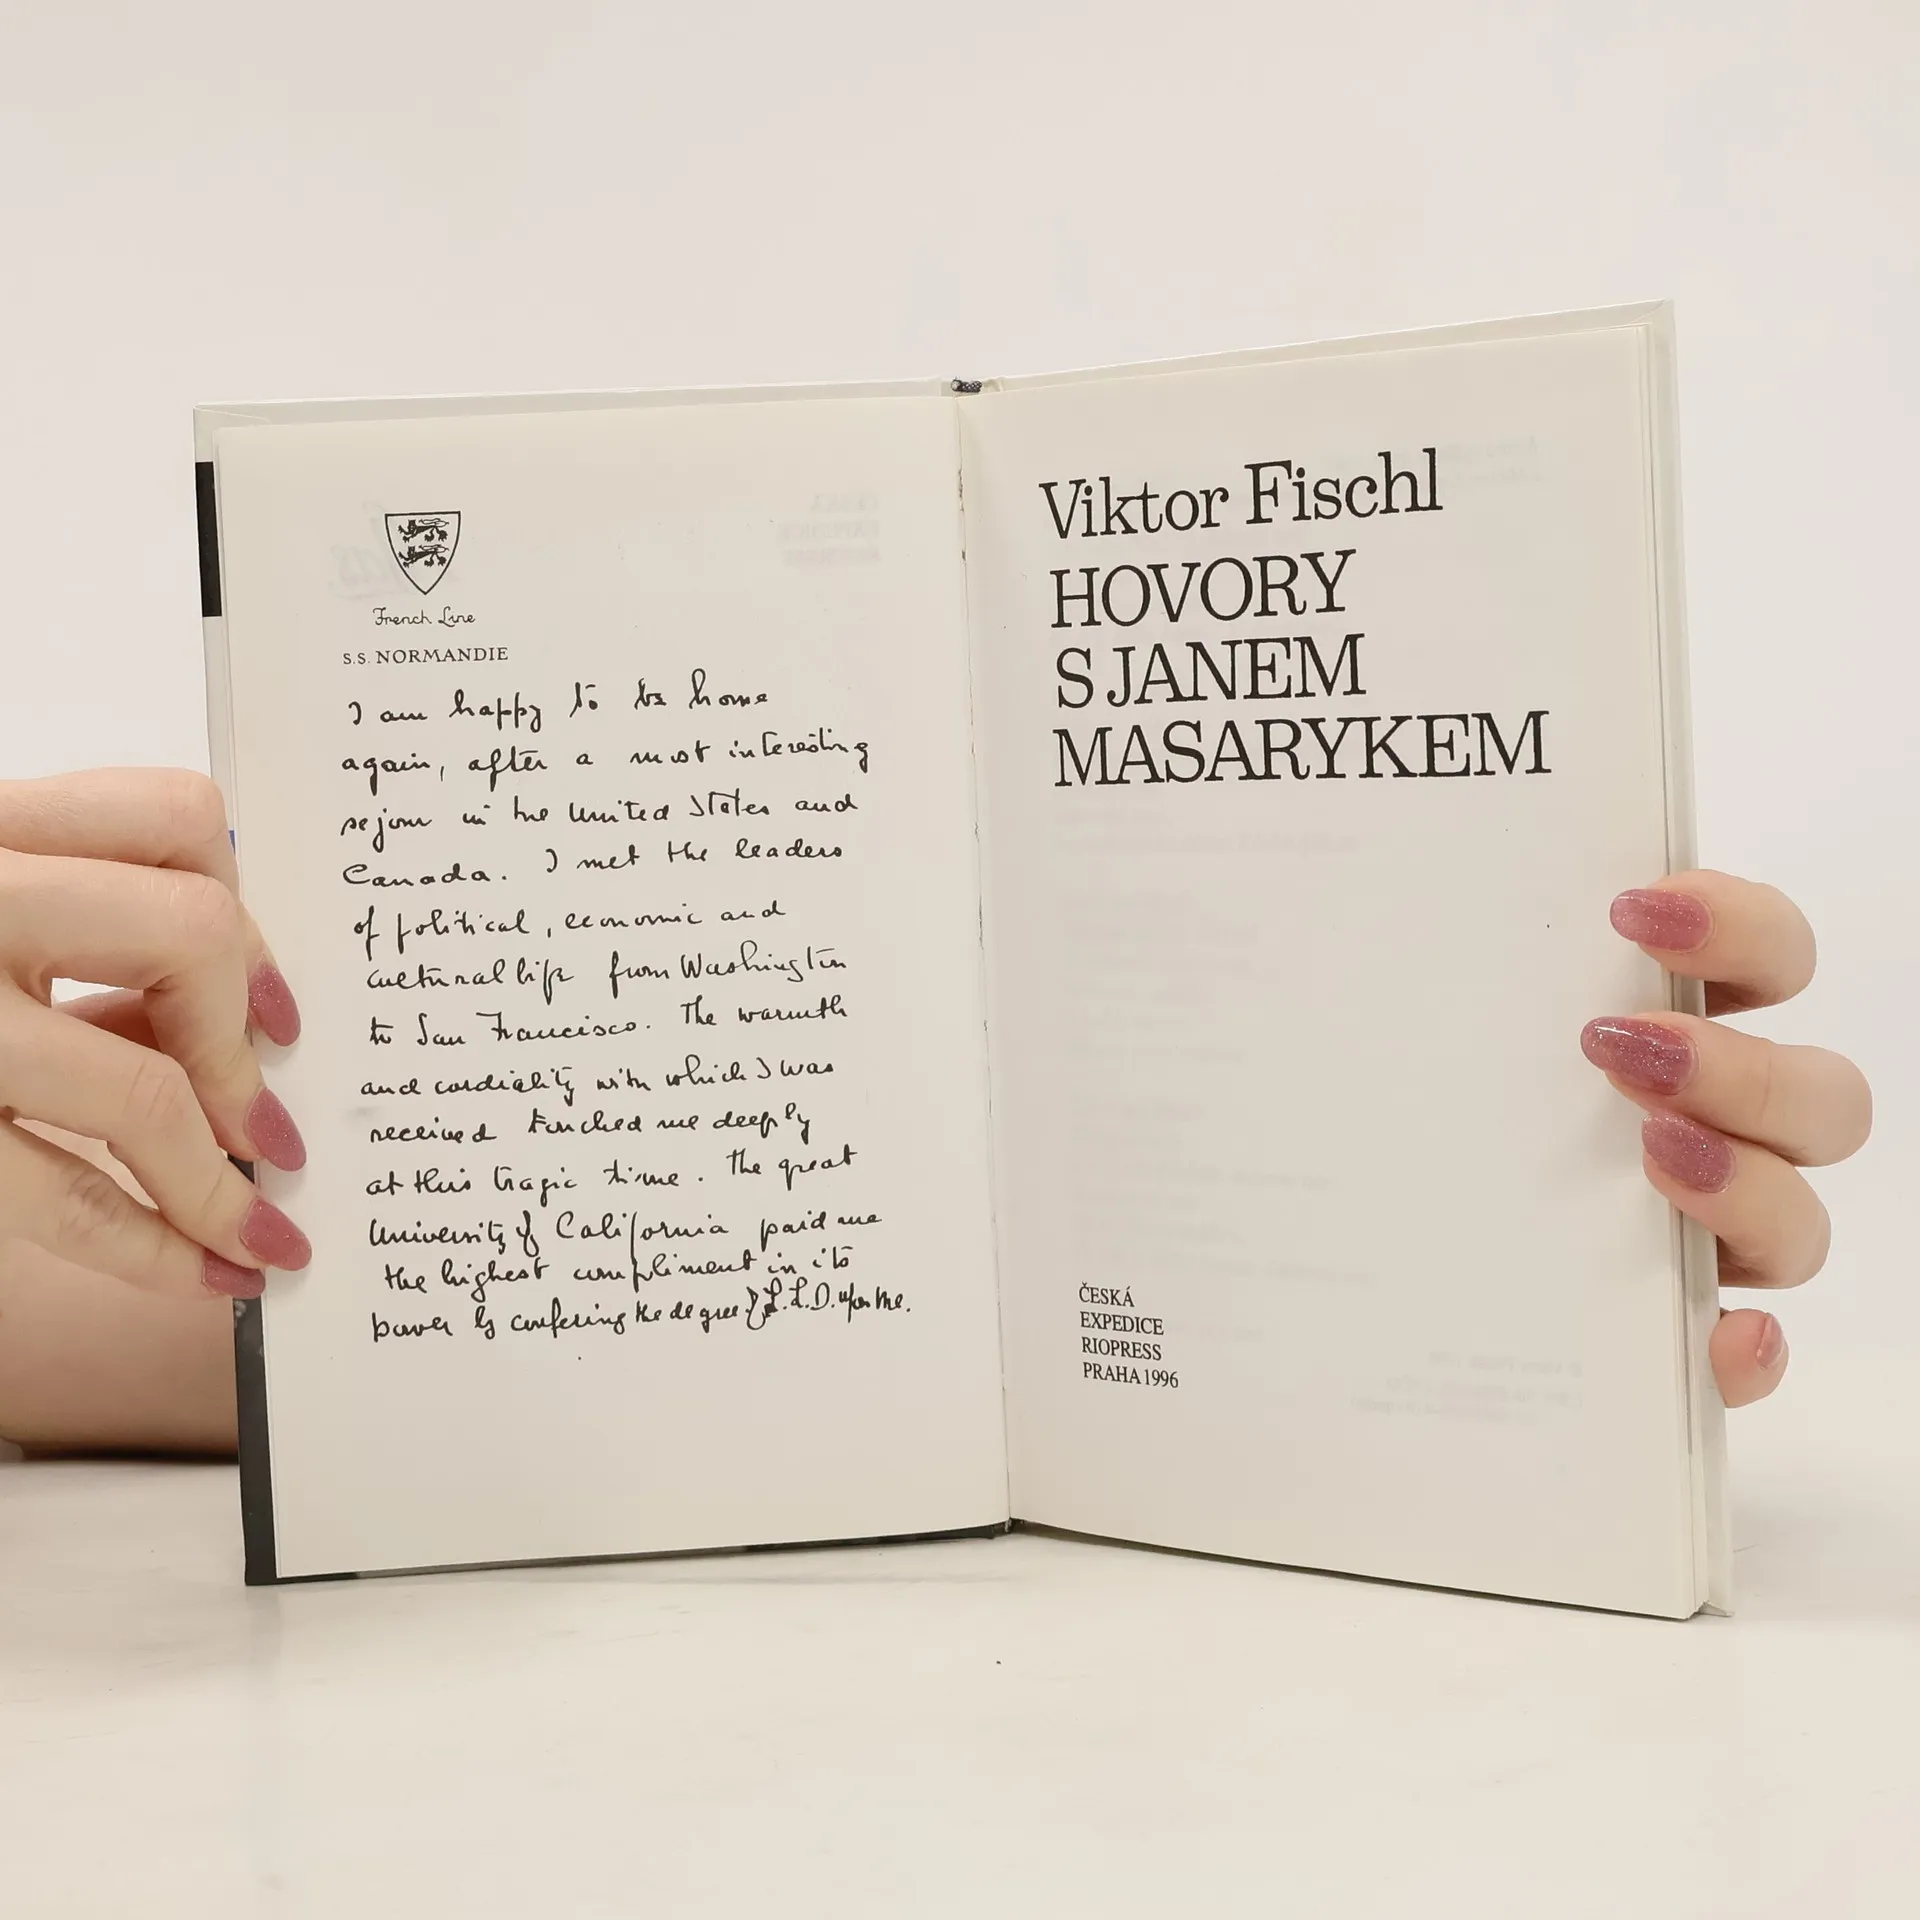 French Line
S.S. NORMANDIE
I am happy to be home
again, after a most interesting
sejour in the United States and
Canada. I met the leaders
of political, economic and
cultural life from Washington
to San Francisco. The warmth
and cordiality with which I was
received touched me deeply
at this tragic time. The great
University of California paid me
the highest compliment in its
power by confering the degree of L.L.D. upon me.
Viktor Fischl
HOVORY
S JANEM
MASARYKEM
ČESKÁ
EXPEDICE
RIOPRESS
PRAHA 1996